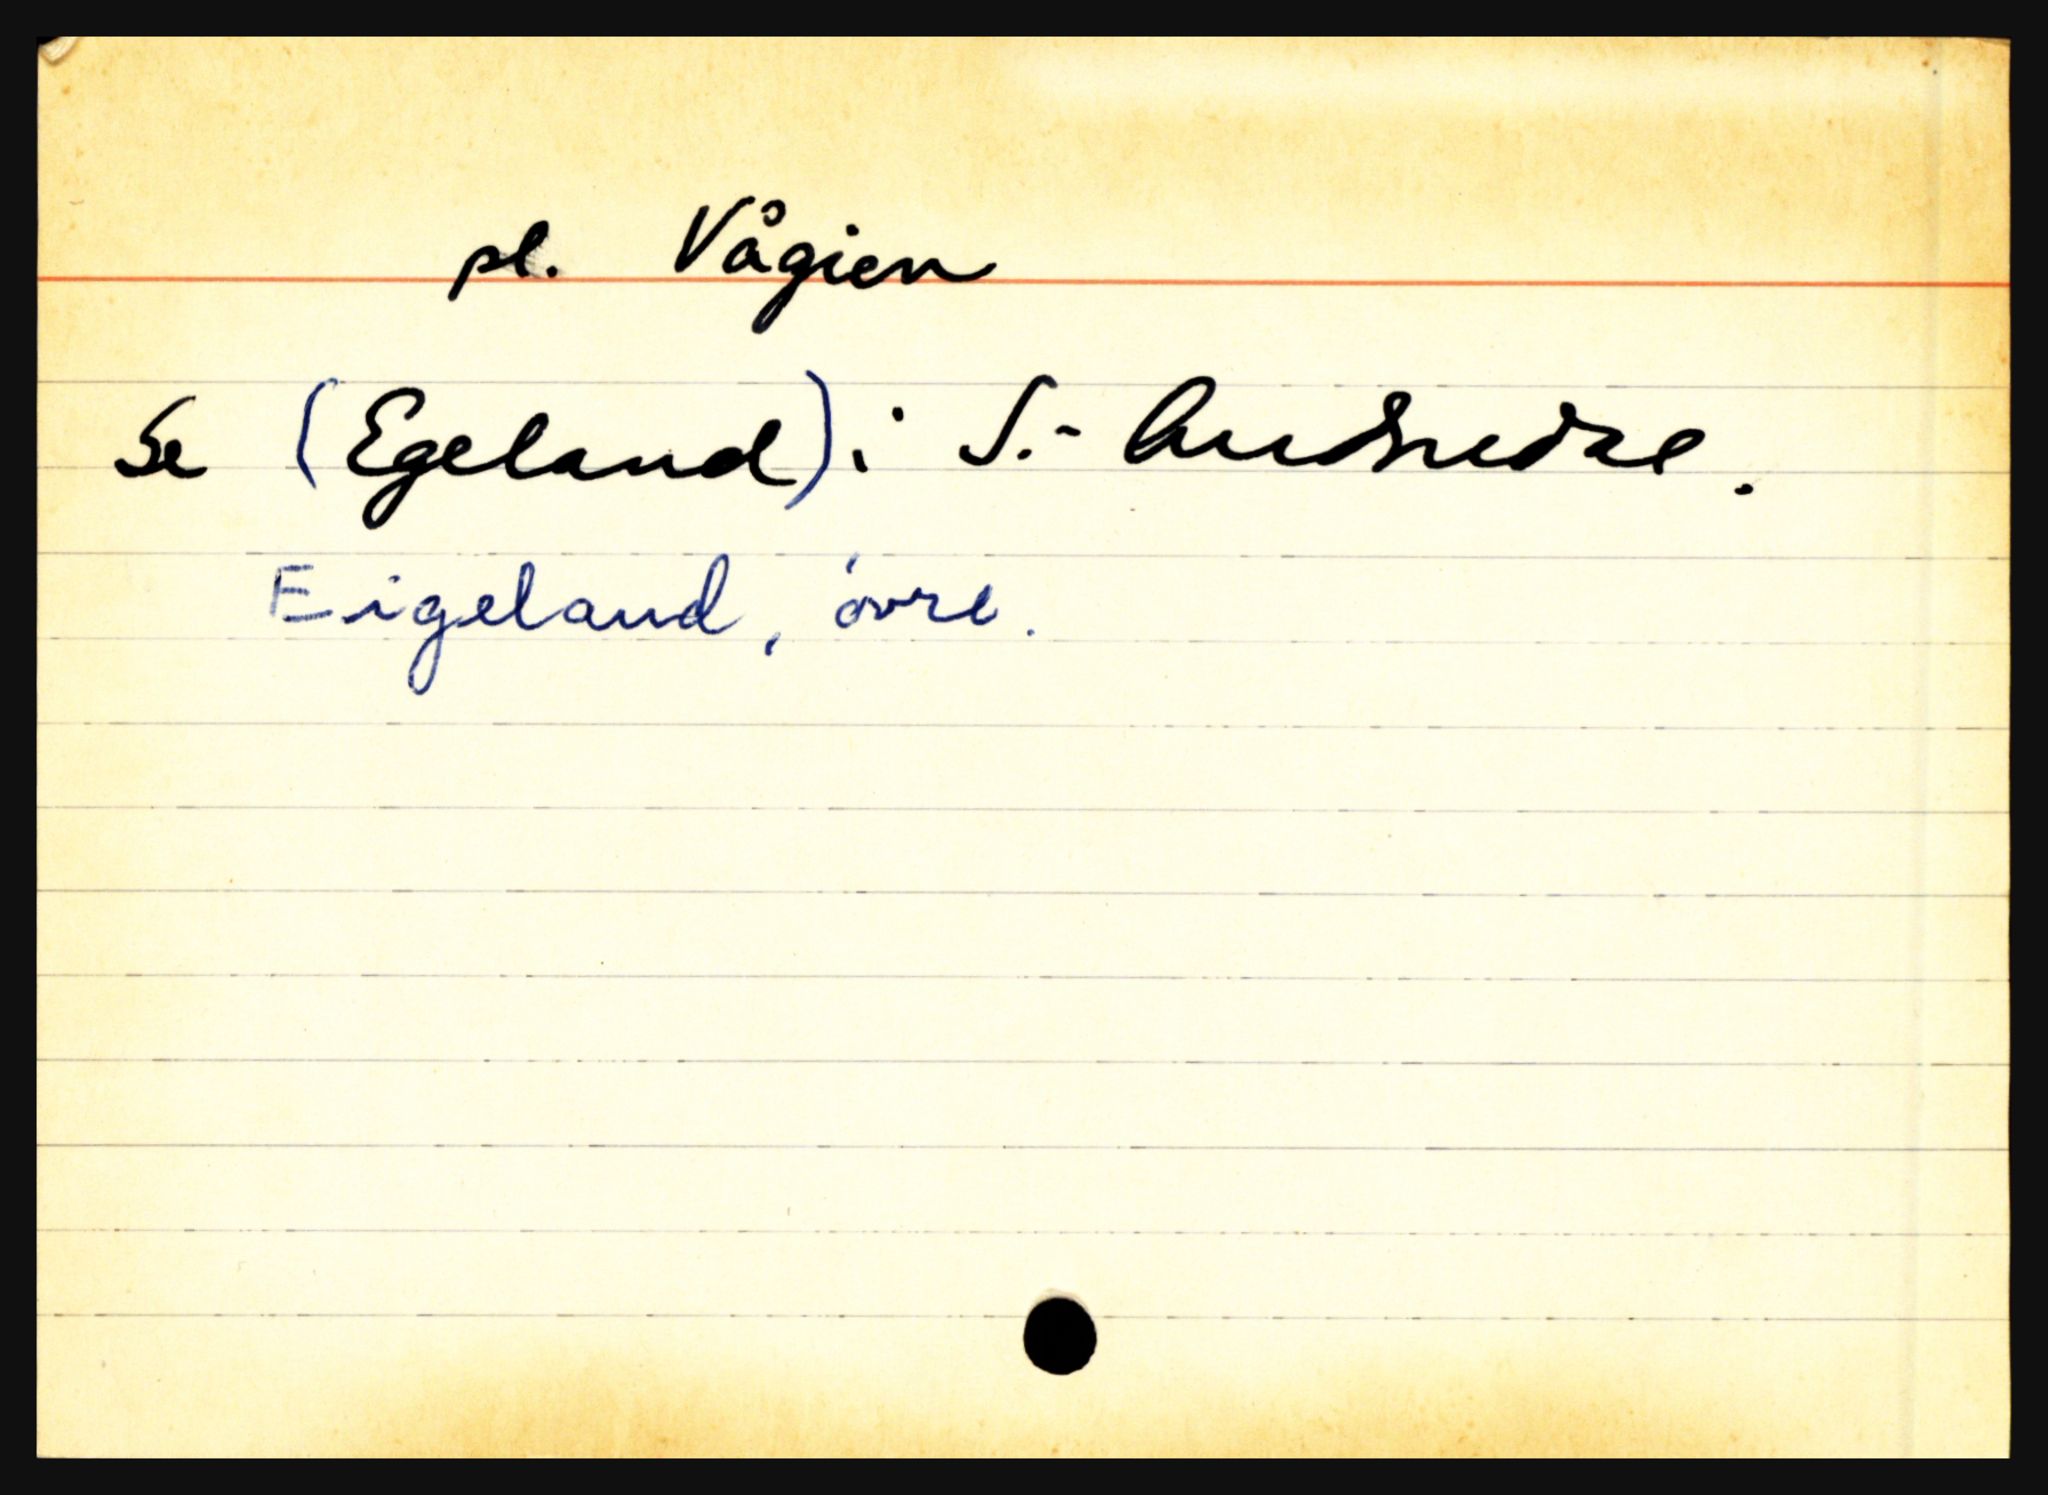 pl. Vågien
Se (Egeland) i S.- Audnedal.
Eigeland, övre.